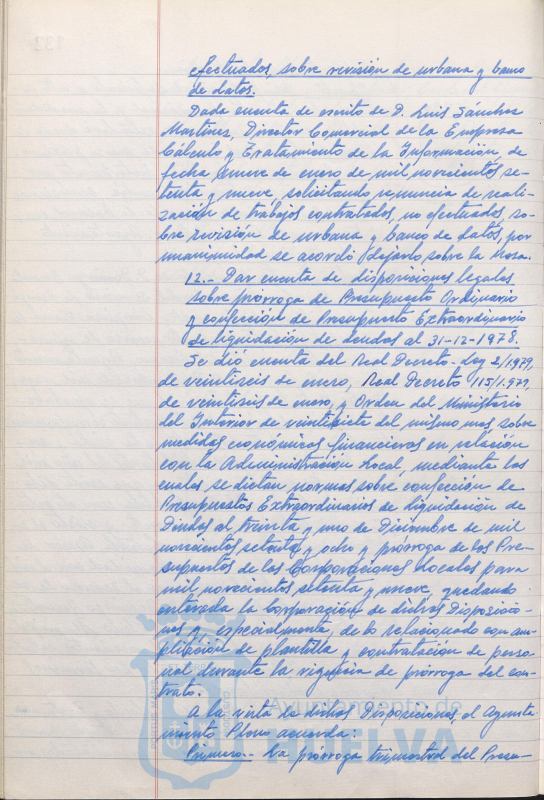 efectuados, sobre revisión de urbana y banco
de datos.
Dada cuenta de escrito de D. Luis Sánchez
Martínez, Director Comercial de la Empresa
Cálculo y Tratamiento de la Información, de
fecha nueve de enero de mil novecientos se-
tenta y nueve, solicitando renuncia de reali-
zación de trabajos contratados, no efectuados, so-
bre revisión de urbana y banco de datos, por
unanimidad se acordó dejarlo sobre la Mesa.
12.- Dar cuenta de disposiciones legales
sobre prórroga de Presupuesto Ordinario
y confección de Presupuesto Extraordinario
de liquidación de deudas al 31-12-1978.
Se dió cuenta del Real Decreto-Ley 2/1979,
de veintiseis de enero, Real Decreto 115/1.979,
de veintiseis de enero, y Orden del Ministerio
del Interior de veintisiete del mismo mes sobre
medidas económicas financieras en relación
con la Administración Local, mediante las
cuales se dictan normas sobre confección de
Presupuestos Extraordinarios de liquidación de
Deudas al treinta y uno de Diciembre de mil
novecientos setenta y ocho y prórroga de los Pre-
supuestos de las Corporaciones Locales para
mil novecientos setenta y nueve, quedando
enterada la Corporación de dichas Disposicio-
nes y, especialmente, de lo relacionado con am-
pliación de plantilla y contratación de perso-
nal durante la vigencia de prórroga del con-
trato.
A la vista de dichas Disposiciones, el Ayunta-
miento Pleno acuerda:
Primero.- La prórroga trimestral del Presu-
Ayuntamiento de
HUELVA